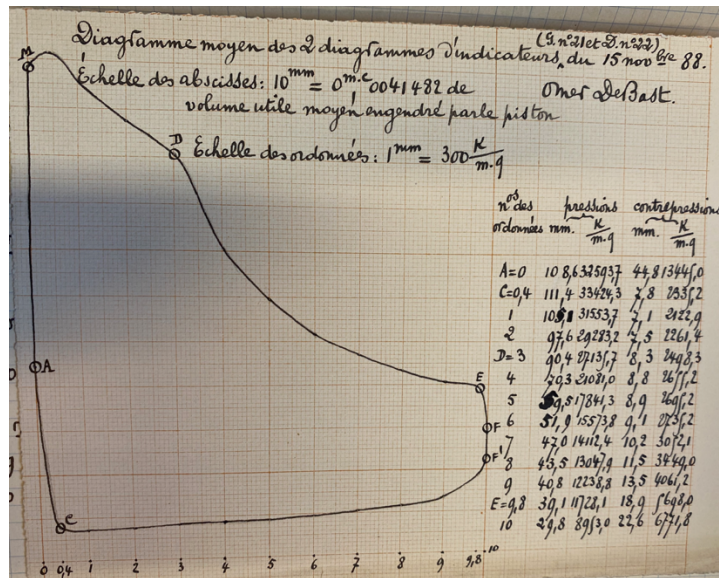 Diagramme moyen des 2 diagrammes d'indicateurs, du 15 nov bre 88.
(G. n°21 et D. n°22)
Échelle des abscisses: 10 mm = 0 m.c, 0041482 de
volume utile moyen engendré par le piston
Omer DeBast.
Echelle des ordonnées: 1 mm = 300 K/m.q
M
D
A
C
E
F
F'
nos des ordonnées pressions contrepressions
mm. K/m.q mm. K/m.q
A=0 108,6 32593,7 44,8 13445,0
C=0,4 111,4 33424,3 7,8 2335,2
1 105,1 31553,7 7,1 2122,9
2 97,6 29283,2 7,5 2261,4
D=3 90,4 27135,7 8,3 2498,3
4 70,3 21081,0 8,8 2655,2
5 59,5 17841,3 8,9 2695,2
6 51,9 15573,8 9,1 2735,2
7 47,0 14112,4 10,2 3072,1
8 43,5 13047,9 11,5 3449,0
9 40,8 12238,8 13,5 4061,2
E=9,8 39,1 11728,1 18,9 5698,0
10 29,8 8953,0 22,6 6771,8
0 0,4 1 2 3 4 5 6 7 8 9 9,8 10